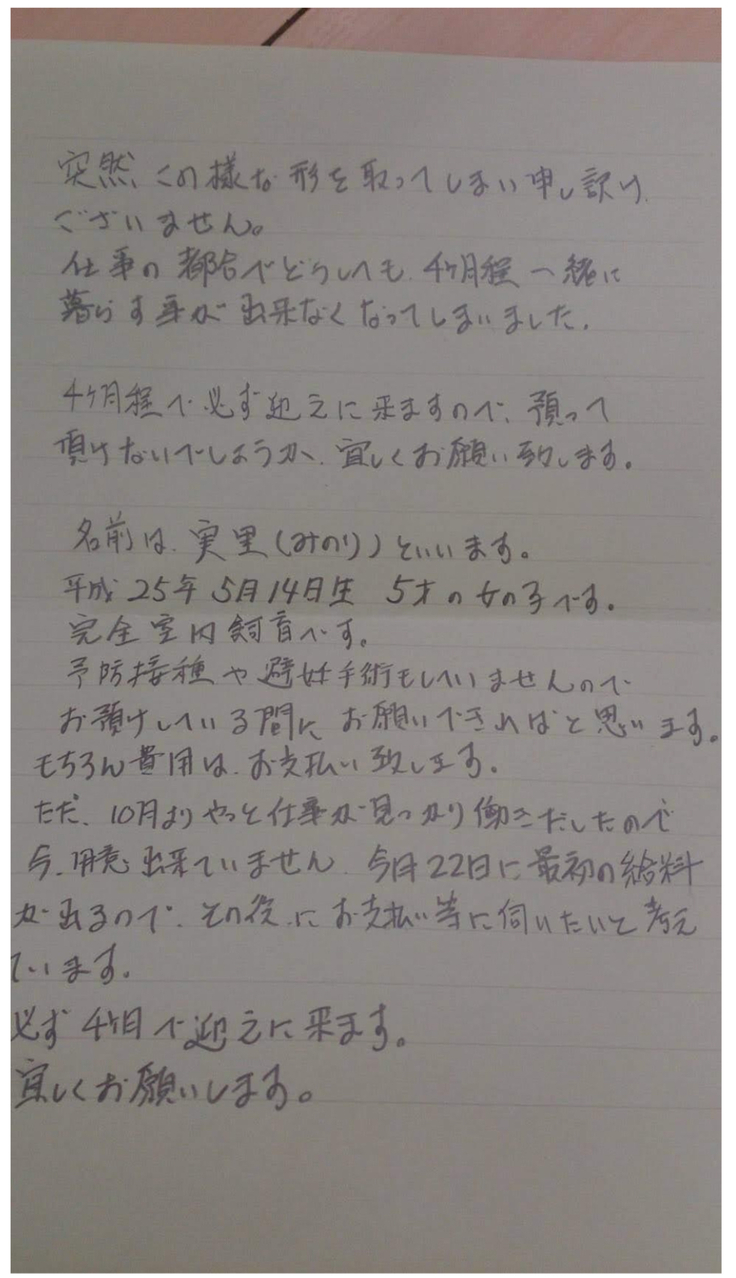 突然、この様な形を取ってしまい申し訳
ございません。
仕事の都合でどうしても、4ヶ月程一緒に
暮らす事が出来なくなってしまいました。
4ヶ月程で必ず迎えに来ますので、預って
頂けないでしょうか、宜しくお願い致します。
名前は、実里(みのり)といいます。
平成25年5月14日生 5才の女の子です。
完全室内飼育です。
予防接種や避妊手術もしていませんので
お預けしている間に、お願いできればと思います。
もちろん費用は、お支払い致します。
ただ、10月よりやっと仕事が見つかり働きだしたので
今、用意出来ていません。今月22日に最初の給料
が出るので、その後、にお支払い等に伺いたいと考え
ています。
必ず4ヶ月で迎えに来ます。
宜しくお願いします。